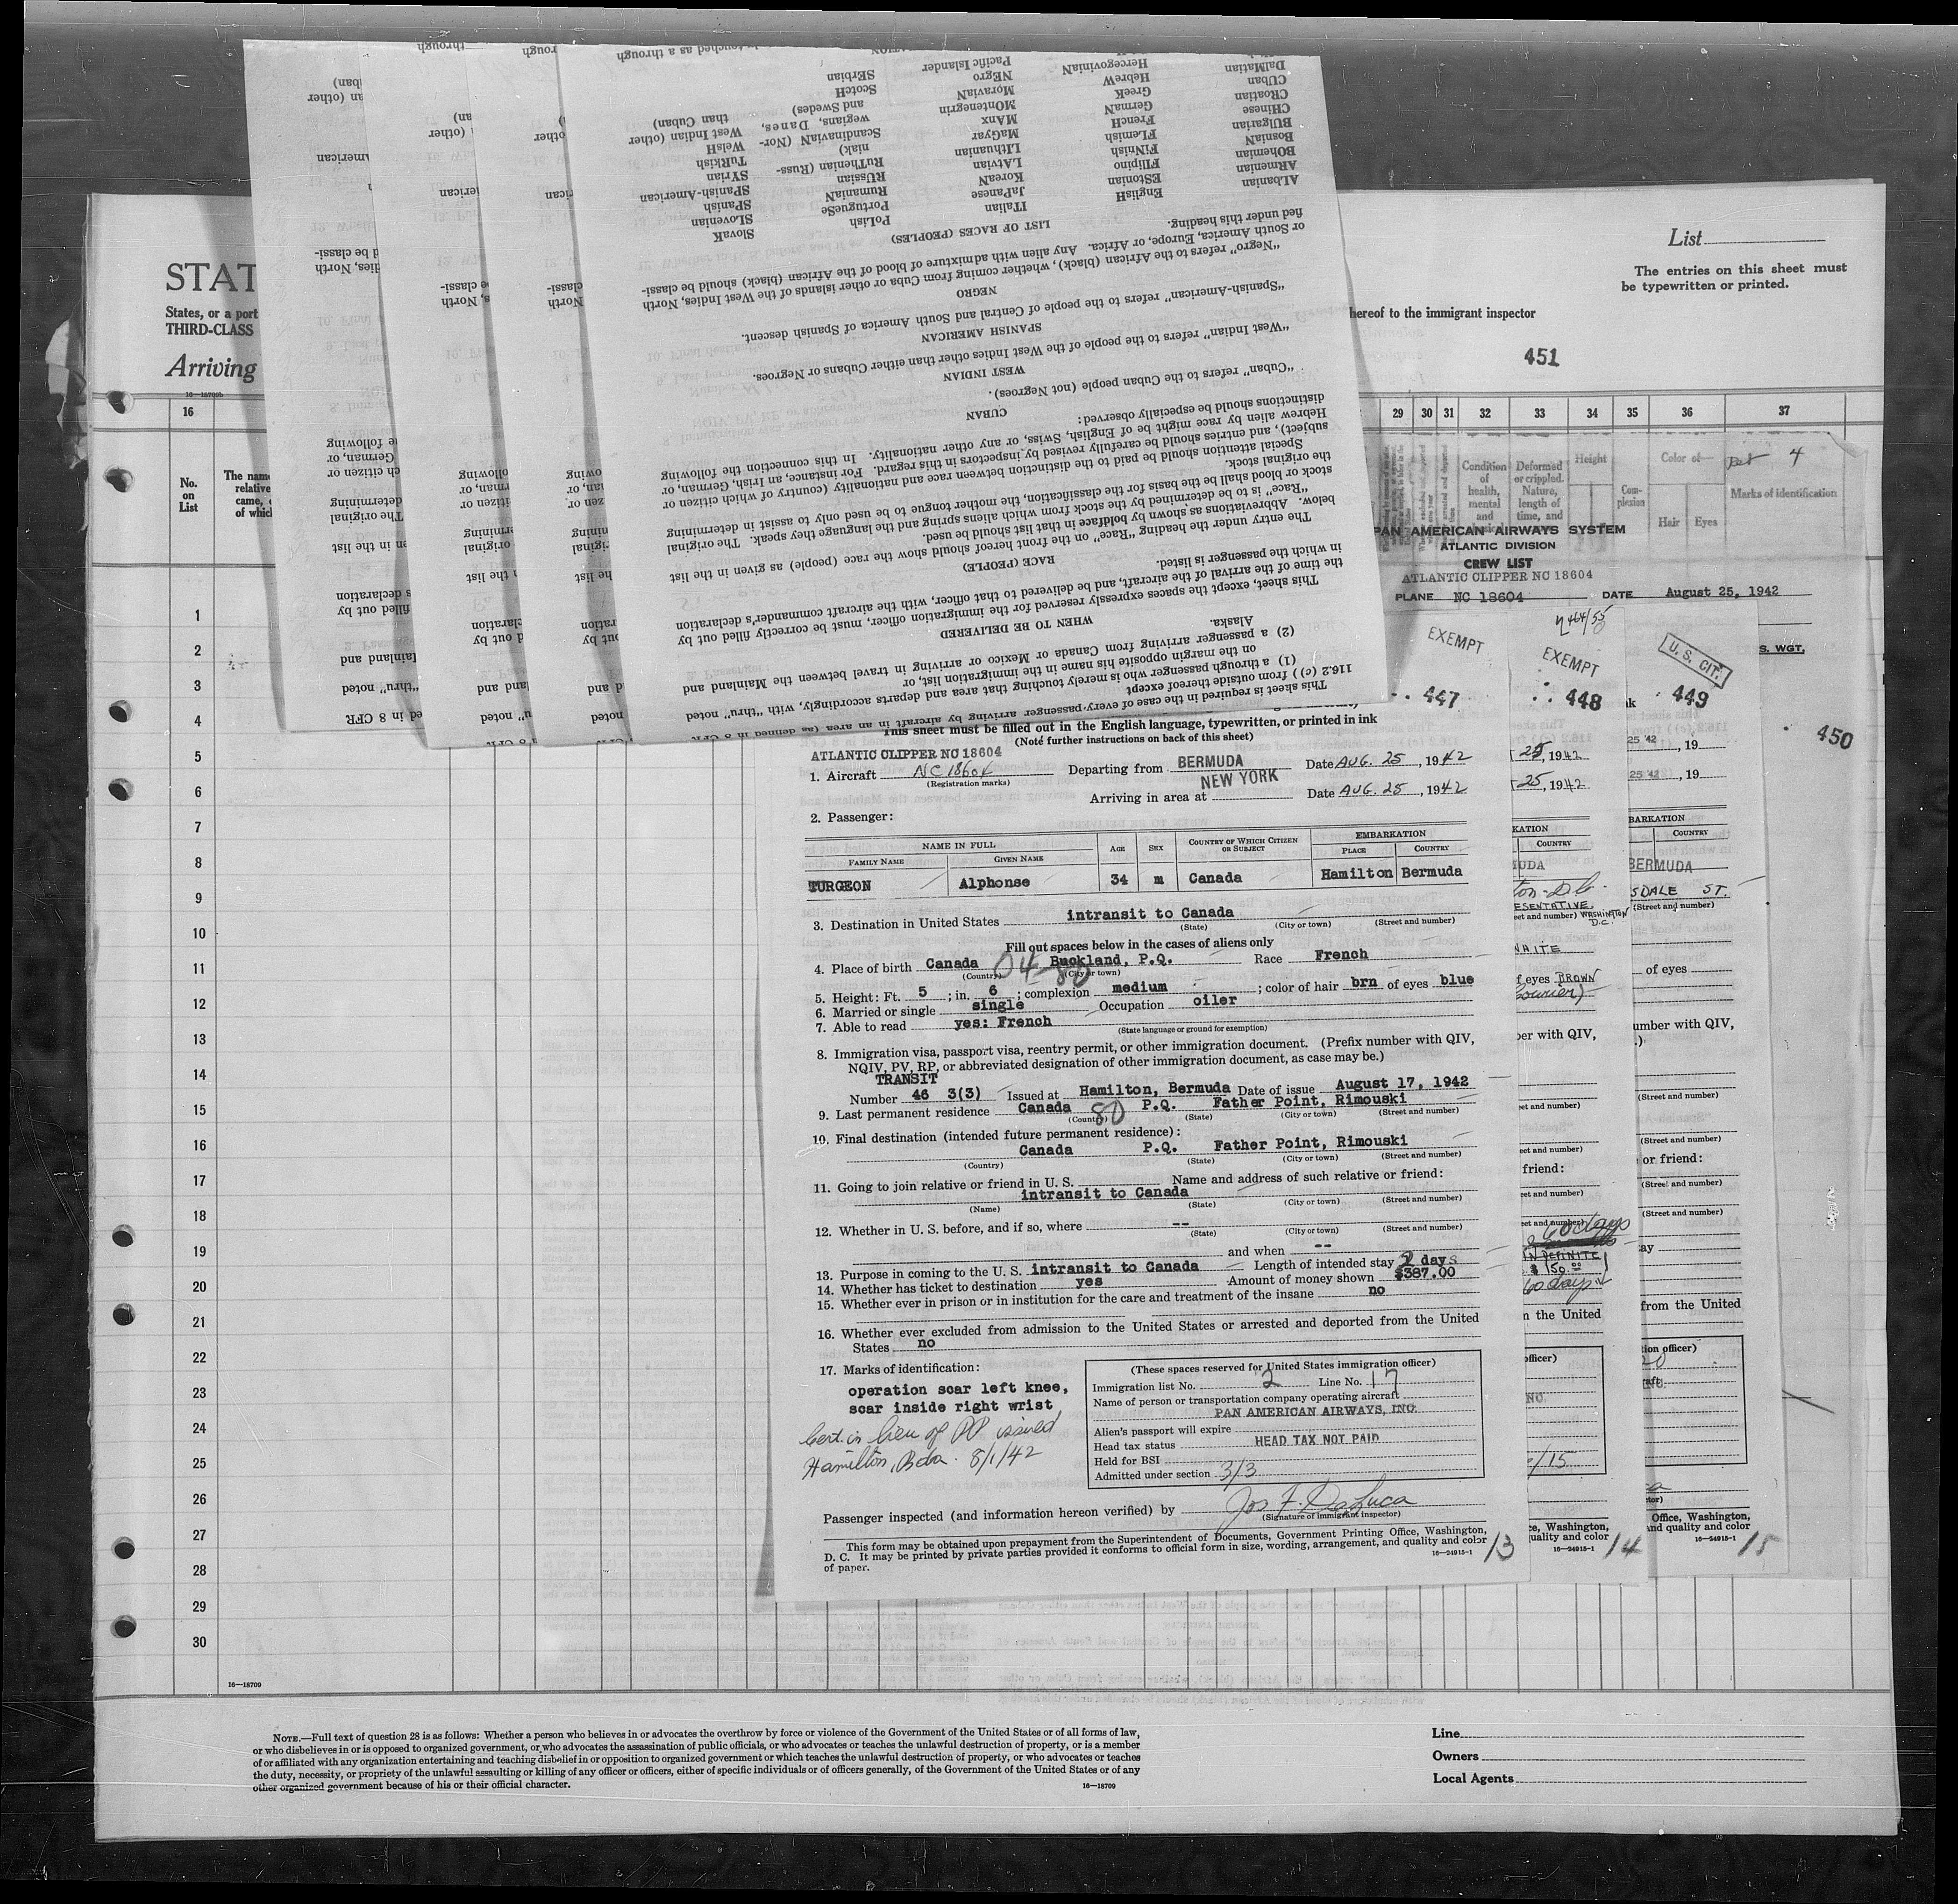 List
The entries on this sheet must
be typewritten or printed.
STAT
States, or a port
THIRD-CLASS
hereof to the immigrant inspector
Arriving
451
16—18709
16
29 30 31 32 33 34 35 36 37
No.
on
List
The name
relative
came,
of which
Condition
of
health,
mental
and
Deformed
or crippled.
Nature,
length of
time, and
Height
Com-
plexion
Color of—
Hair Eyes
4
Marks of identification
PAN AMERICAN AIRWAYS SYSTEM
ATLANTIC DIVISION
CREW LIST
ATLANTIC CLIPPER NC 18604
PLANE NC 18604 DATE August 25, 1942
S. WGT.
EXEMPT
447
EXEMPT
448
U. S. CIT.
449
450
This sheet is required in the case of every passenger arriving by aircraft in an area (as defined in 8 CFR
116.2 (c)) from outside thereof except
(1) a through passenger who is merely touching that area and departs accordingly, with "thru" noted
on the margin opposite his name in the immigration list, or
(2) a passenger arriving from Canada or Mexico or arriving in travel between the Mainland and
Alaska.
WHEN TO BE DELIVERED
This sheet, except the spaces expressly reserved for the immigration officer, must be correctly filled out by
the time of the arrival of the aircraft, and be delivered to that officer, with the aircraft commander's declaration
in which the passenger is listed.
RACE (PEOPLE)
The entry under the heading "Race" on the front hereof should show the race (people) as given in the list
below. Abbreviations as shown by boldface in that list should be used.
"Race" is to be determined by the stock from which aliens spring and the language they speak. The original
stock or blood shall be the basis for the classification, the mother tongue to be used only to assist in determining
the original stock.
Special attention should be paid to the distinction between race and nationality (country of which citizen or
subject), and entries should be carefully revised by inspectors in this regard. For instance, an Irish, German, or
Hebrew alien by race might be of English, Swiss, or any other nationality. In this connection the following
distinctions should be especially observed:
CUBAN
"Cuban" refers to the Cuban people (not Negroes).
WEST INDIAN
"West Indian" refers to the people of the West Indies other than either Cubans or Negroes.
SPANISH AMERICAN
"Spanish-American" refers to the people of Central and South America of Spanish descent.
NEGRO
"Negro" refers to the African (black), whether coming from Cuba or other islands of the West Indies, North
or South America, Europe, or Africa. Any alien with admixture of blood of the African (black) should be classi-
fied under this heading.
LIST OF RACES (PEOPLES)
ALbanian EnglisH ITalian PoLish SlovaK
ARmenian EStonian JaPanese PortugueSe SLovenian
BOhemian FIlipino KoreaN RumaniaN SPanish
BosniaN FiNnish LAtvian RUssian SPanish-American
BUlgarian FLemish LIthuanian RuThenian (Russ- SYrian
CHinese FrencH MaGyar niak) TuRkish
CRoatian GermaN MAnx ScandinaviaN (Nor- WelsH
CUban GreeK MOntenegrin wegians, Danes, West Indian (other
DalMatian HebreW MoraviaN and Swedes) than Cuban)
HercegoviniaN NEgro ScotcH
Pacific Islander SErbian
This sheet must be filled out in the English language, typewritten, or printed in ink
(Note further instructions on back of this sheet)
ATLANTIC CLIPPER NC 18604
1. Aircraft NC 18604 Departing from BERMUDA Date AUG. 25, 1942
(Registration marks)
Arriving in area at NEW YORK Date AUG. 25, 1942
2. Passenger:
NAME IN FULL AGE SEX COUNTRY OF WHICH CITIZEN OR SUBJECT EMBARKATION
FAMILY NAME GIVEN NAME PLACE COUNTRY
TURGEON Alphonse 34 m Canada Hamilton Bermuda
3. Destination in United States intransit to Canada
(State) (City or town) (Street and number)
Fill out spaces below in the cases of aliens only
4. Place of birth Canada Buckland, P.Q. Race French
(Country) (City or town)
04-80
5. Height: Ft. 5; in. 6; complexion medium; color of hair brn of eyes blue
6. Married or single single Occupation oiler
7. Able to read yes: French
(State language or ground for exemption)
8. Immigration visa, passport visa, reentry permit, or other immigration document. (Prefix number with QIV,
NQIV, PV, RP, or abbreviated designation of other immigration document, as case may be.)
TRANSIT
Number 46 3(3) Issued at Hamilton, Bermuda Date of issue August 17, 1942
9. Last permanent residence Canada 80 P.Q. Father Point, Rimouski
(Country) (State) (City or town) (Street and number)
10. Final destination (intended future permanent residence):
Canada P.Q. Father Point, Rimouski
(Country) (State) (City or town) (Street and number)
11. Going to join relative or friend in U. S. Name and address of such relative or friend:
intransit to Canada
(Name) (State) (City or town) (Street and number)
12. Whether in U. S. before, and if so, where --
(State) (City or town) (Street and number)
and when --
13. Purpose in coming to the U. S. intransit to Canada Length of intended stay 2 days
14. Whether has ticket to destination yes Amount of money shown $387.00
15. Whether ever in prison or in institution for the care and treatment of the insane no
16. Whether ever excluded from admission to the United States or arrested and deported from the United
States no
17. Marks of identification:
operation scar left knee,
scar inside right wrist
Cert. in lieu of PP issued
Hamilton, Bda. 8/1/42
(These spaces reserved for United States immigration officer)
Immigration list No. 2 Line No. 17
Name of person or transportation company operating aircraft
PAN AMERICAN AIRWAYS, INC.
Alien's passport will expire
Head tax status HEAD TAX NOT PAID
Held for BSI
Admitted under section 3/3
Passenger inspected (and information hereon verified) by Jos F. DeLuca
(Signature of immigrant inspector)
This form may be obtained upon prepayment from the Superintendent of Documents, Government Printing Office, Washington,
D. C. It may be printed by private parties provided it conforms to official form in size, wording, arrangement, and quality and color
of paper.
16—24915-1
13
14
15
1
2
3
4
5
6
7
8
9
10
11
12
13
14
15
16
17
18
19
20
21
22
23
24
25
26
27
28
29
30
16—18709
NOTE.—Full text of question 28 is as follows: Whether a person who believes in or advocates the overthrow by force or violence of the Government of the United States or of all forms of law,
or who disbelieves in or is opposed to organized government, or who advocates the assassination of public officials, or who advocates or teaches the unlawful destruction of property, or is a member
of or affiliated with any organization entertaining and teaching disbelief in or opposition to organized government or which teaches the unlawful destruction of property, or who advocates or teaches
the duty, necessity, or propriety of the unlawful assaulting or killing of any officer or officers, either of specific individuals or of officers generally, of the Government of the United States or of any
other organized government because of his or their official character.
16—18709
Line
Owners
Local Agents